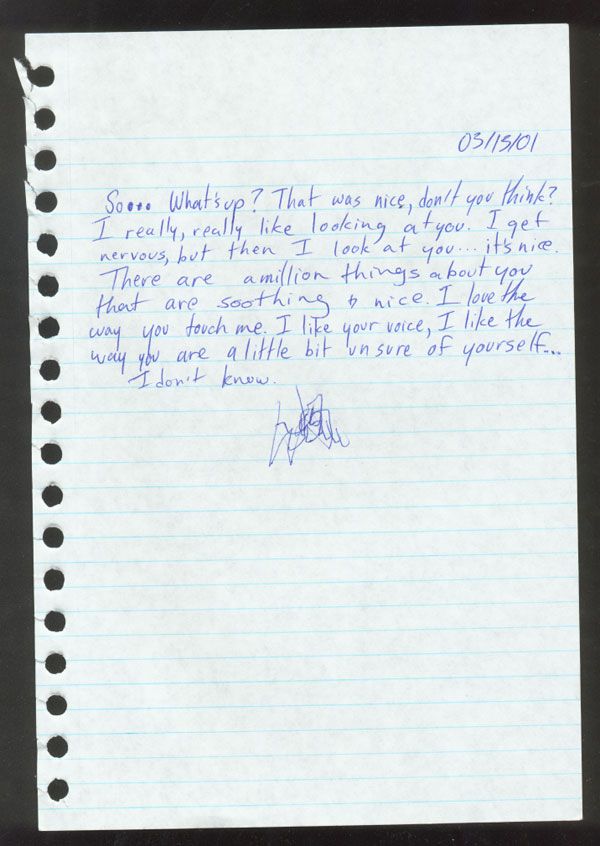 03/15/01
So.... What's up? That was nice, don't you think?
I really, really like looking at you. I get
nervous, but then I look at you... it's nice.
There are a million things about you
that are soothing & nice. I love the
way you touch me. I like your voice, I like the
way you are a little bit unsure of yourself...
I don't know.